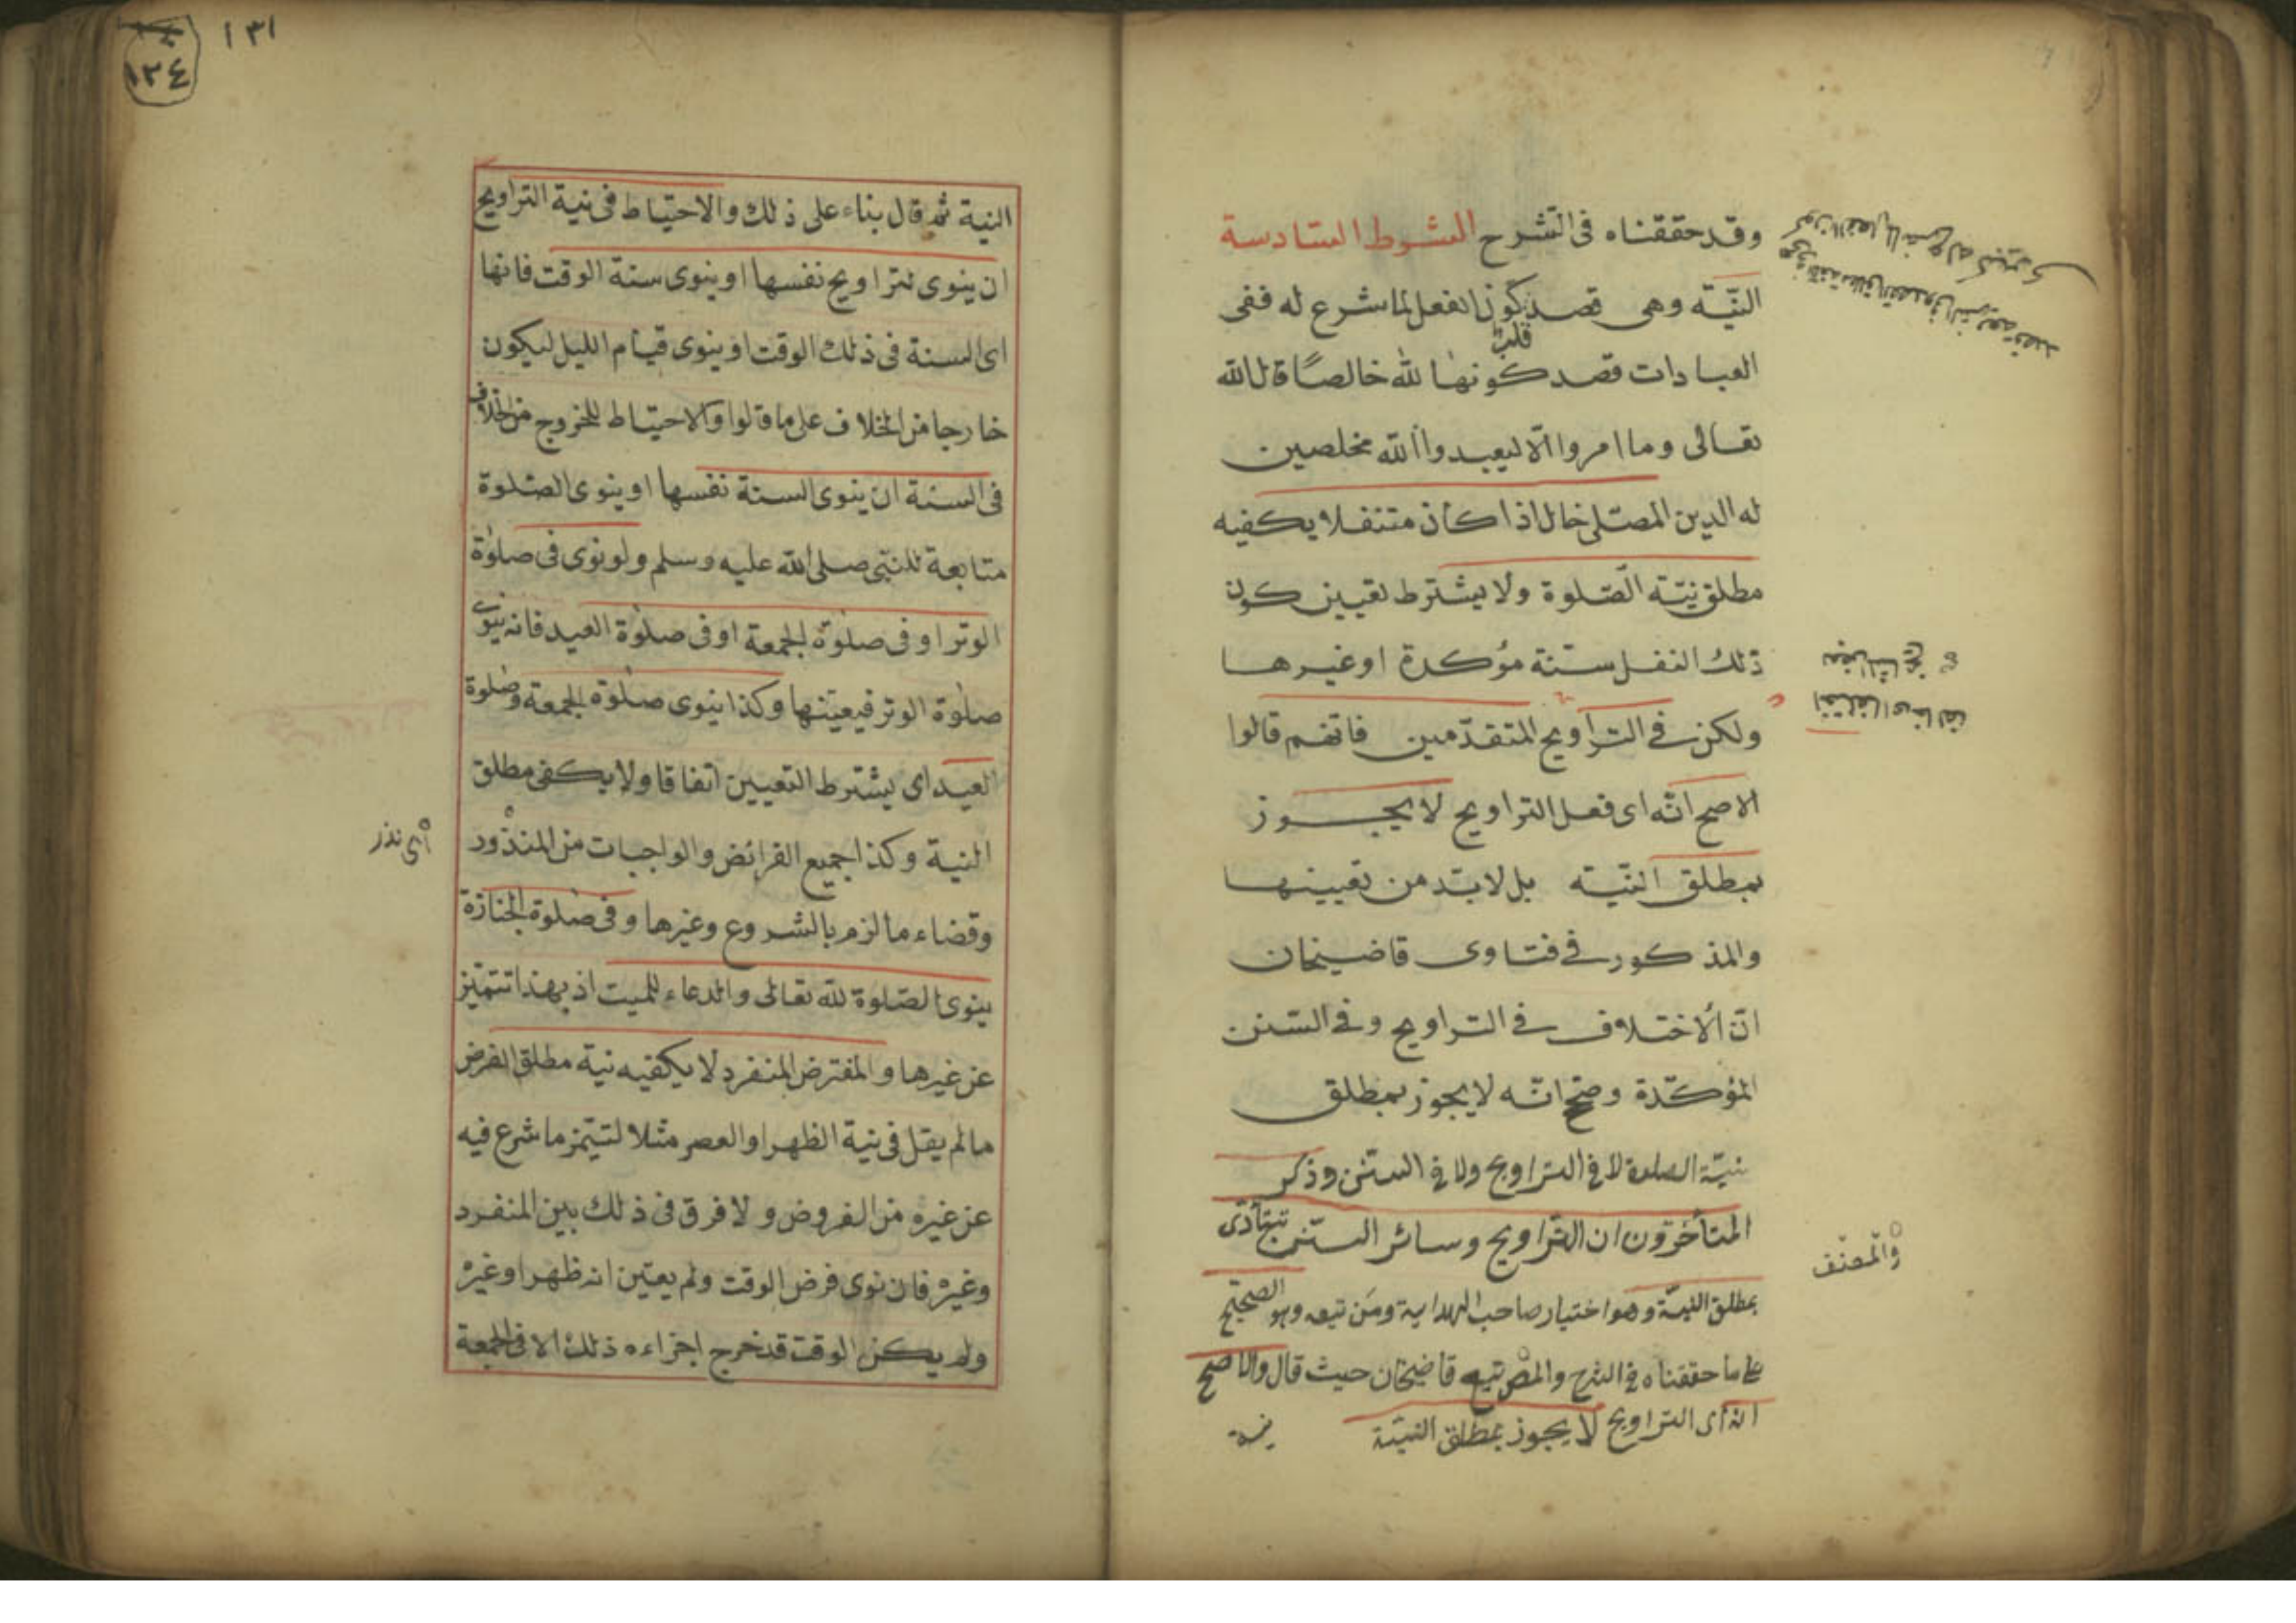 وقد حققناه فى الشرح الشوط السادسة
النيّة وهى قصد كون الفعل لما شرع له ففى
قلبه
العبادات قصد كونها لله خالصًا قال الله
تعالى وما امروا الّا ليعبدوا الله مخلصين
له الدين المصلى خال اذا كان متنفلا يكفيه
مطلق نيّة الصّلوة ولا يشترط تعيين كون
ذلك النفل سنّة مؤكدة او غيرها
ولكن فى التراويح المتقدّمين فانهم قالوا
الاصح انّه اى فعل التراويح لا يجوز
بمطلق النيّة بل لا بدّ من تعيينها
والمذكور فى فتاوى قاضيخان
انّ الاختلاف فى التراويح وفى السّنن
المؤكّدة وصحّ انّه لا يجوز بمطلق
نيّة الصلاة لا فى التراويح ولا فى السنّن وذكر
المتأخرّون ان التّراويح وسائر السنّن تتأدّى
بمطلق النيّة وهو اختيار صاحب الهداية ومَن تبعه وهو الصحيح
على ما حققناه فى الشرح والمص تبع قاضيخان حيث قال والاصح
انه اى التراويح لا يجوز بمطلق النيّة
والمصنّف
١٣١
١٢٤
النية ثم قال بناء على ذلك والاحتياط فى نية التراويح
ان ينوى لتراويح نفسها او ينوى سنة الوقت فانها
اى السنة فى ذلك الوقت او ينوى قيام الليل ليكون
خارجا من الخلاف على ما قالوا والاحتياط للخروج من الخلاف
فى السنة ان ينوى السنة نفسها او ينوى الصّلوة
متابعة للنبّى صلى الله عليه وسلم ولو نوى فى صلوة
الوتر او فى صلوة الجمعة او فى صلوة العيد فانه ينوى
صلوة الوتر فيعيّنها وكذا ينوى صلوة الجمعة وصلوة
العيد اى يشترط التعيين اتفاقا ولا يكفى مطلق
النية وكذا جميع الفرائض والواجبات من المنذور
وقضاء ما لزم بالشروع وغيرها وفى صلوة الجنازة
ينوى الصّلوة لله تعالى والدعاء للميت اذ بهذا تتميّز
عن غيرها والمفترض المنفرد لا يكفيه نية مطلق الفرض
ما لم يقل فى نية الظهر او العصر مثلا لتيّمز ما شرع فيه
عن غيره من الفروض ولا فرق فى ذلك بين المنفرد
وغيره فان نوى فرض الوقت ولم يعيّن انه ظهر او غيره
ولم يكن الوقت قد خرج اجزاءه ذلك الا فى الجمعة
أى نذر